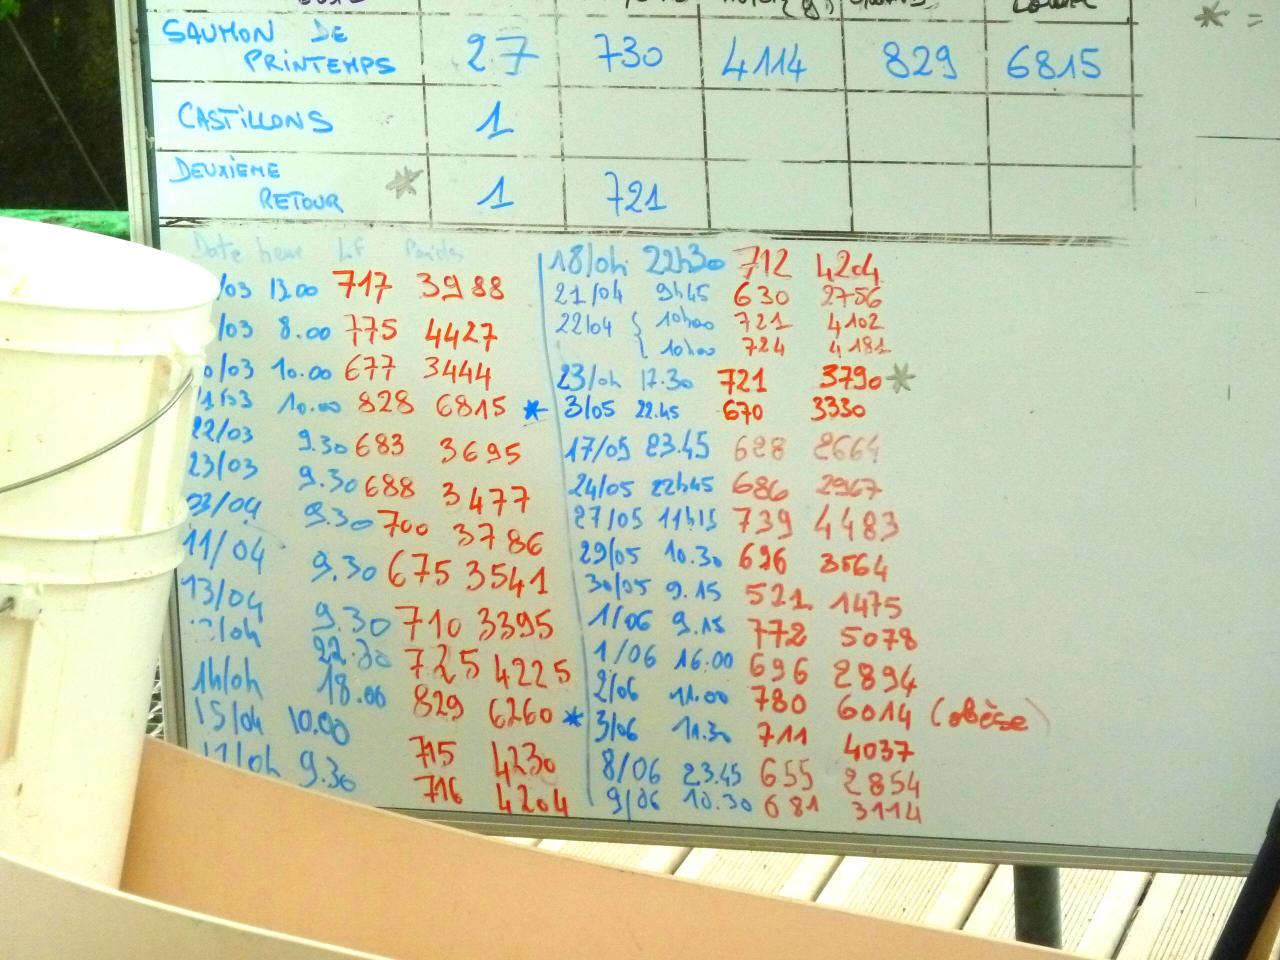 SAUMON DE
PRINTEMPS 27 730 4114 829 6815
CASTILLONS 1
DEUXIEME
RETOUR * 1 721
* =
Date heure LF Poids
/03 13.00 717 3988
/03 8.00 775 4427
0/03 10.00 677 3444
10.00 828 6815 *
22/03 9.30 683 3695
23/03 9.30 688 3477
03/04 9.30 700 3786
11/04 9.30 675 3541
13/04 9.30 710 3395
/04 22.30 725 4225
14/04 18.00 829 6260 *
15/04 10.00 715 4230
17/04 9.30 716 4204
18/04 22h30 712 4204
21/04 9h45 630 2756
22/04 { 10h00 721 4102
10h00 724 4181
23/04 17.30 721 3790 *
3/05 22.45 670 3330
17/05 23.45 628 2664
24/05 22h45 686 2967
27/05 11h15 739 4483
29/05 10.30 696 3564
30/05 9.15 521 1475
1/06 9.15 772 5078
1/06 16.00 696 2894
2/06 11.00 780 6014 (obèse)
3/06 11.30 711 4037
8/06 23.45 655 2854
9/06 10.30 681 3114